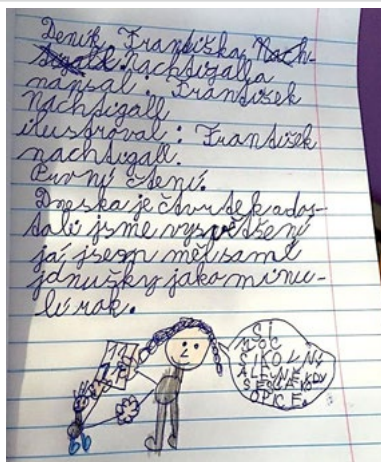 Deník Františka Nach-
tigall Nachtigalla
napsal. František
Nachtigall
ilustroval: František
nachtigall.
První čtení.
Dneska je čtvrtek a dos-
tali jsme vysvětšení
já jsem měl samí
jdnušky jako minu-
lí rok.
11
1
SI
MOC
ŠIKOVNÝ
ALE NĚKDY
SEŠ JAKO
OPICE.